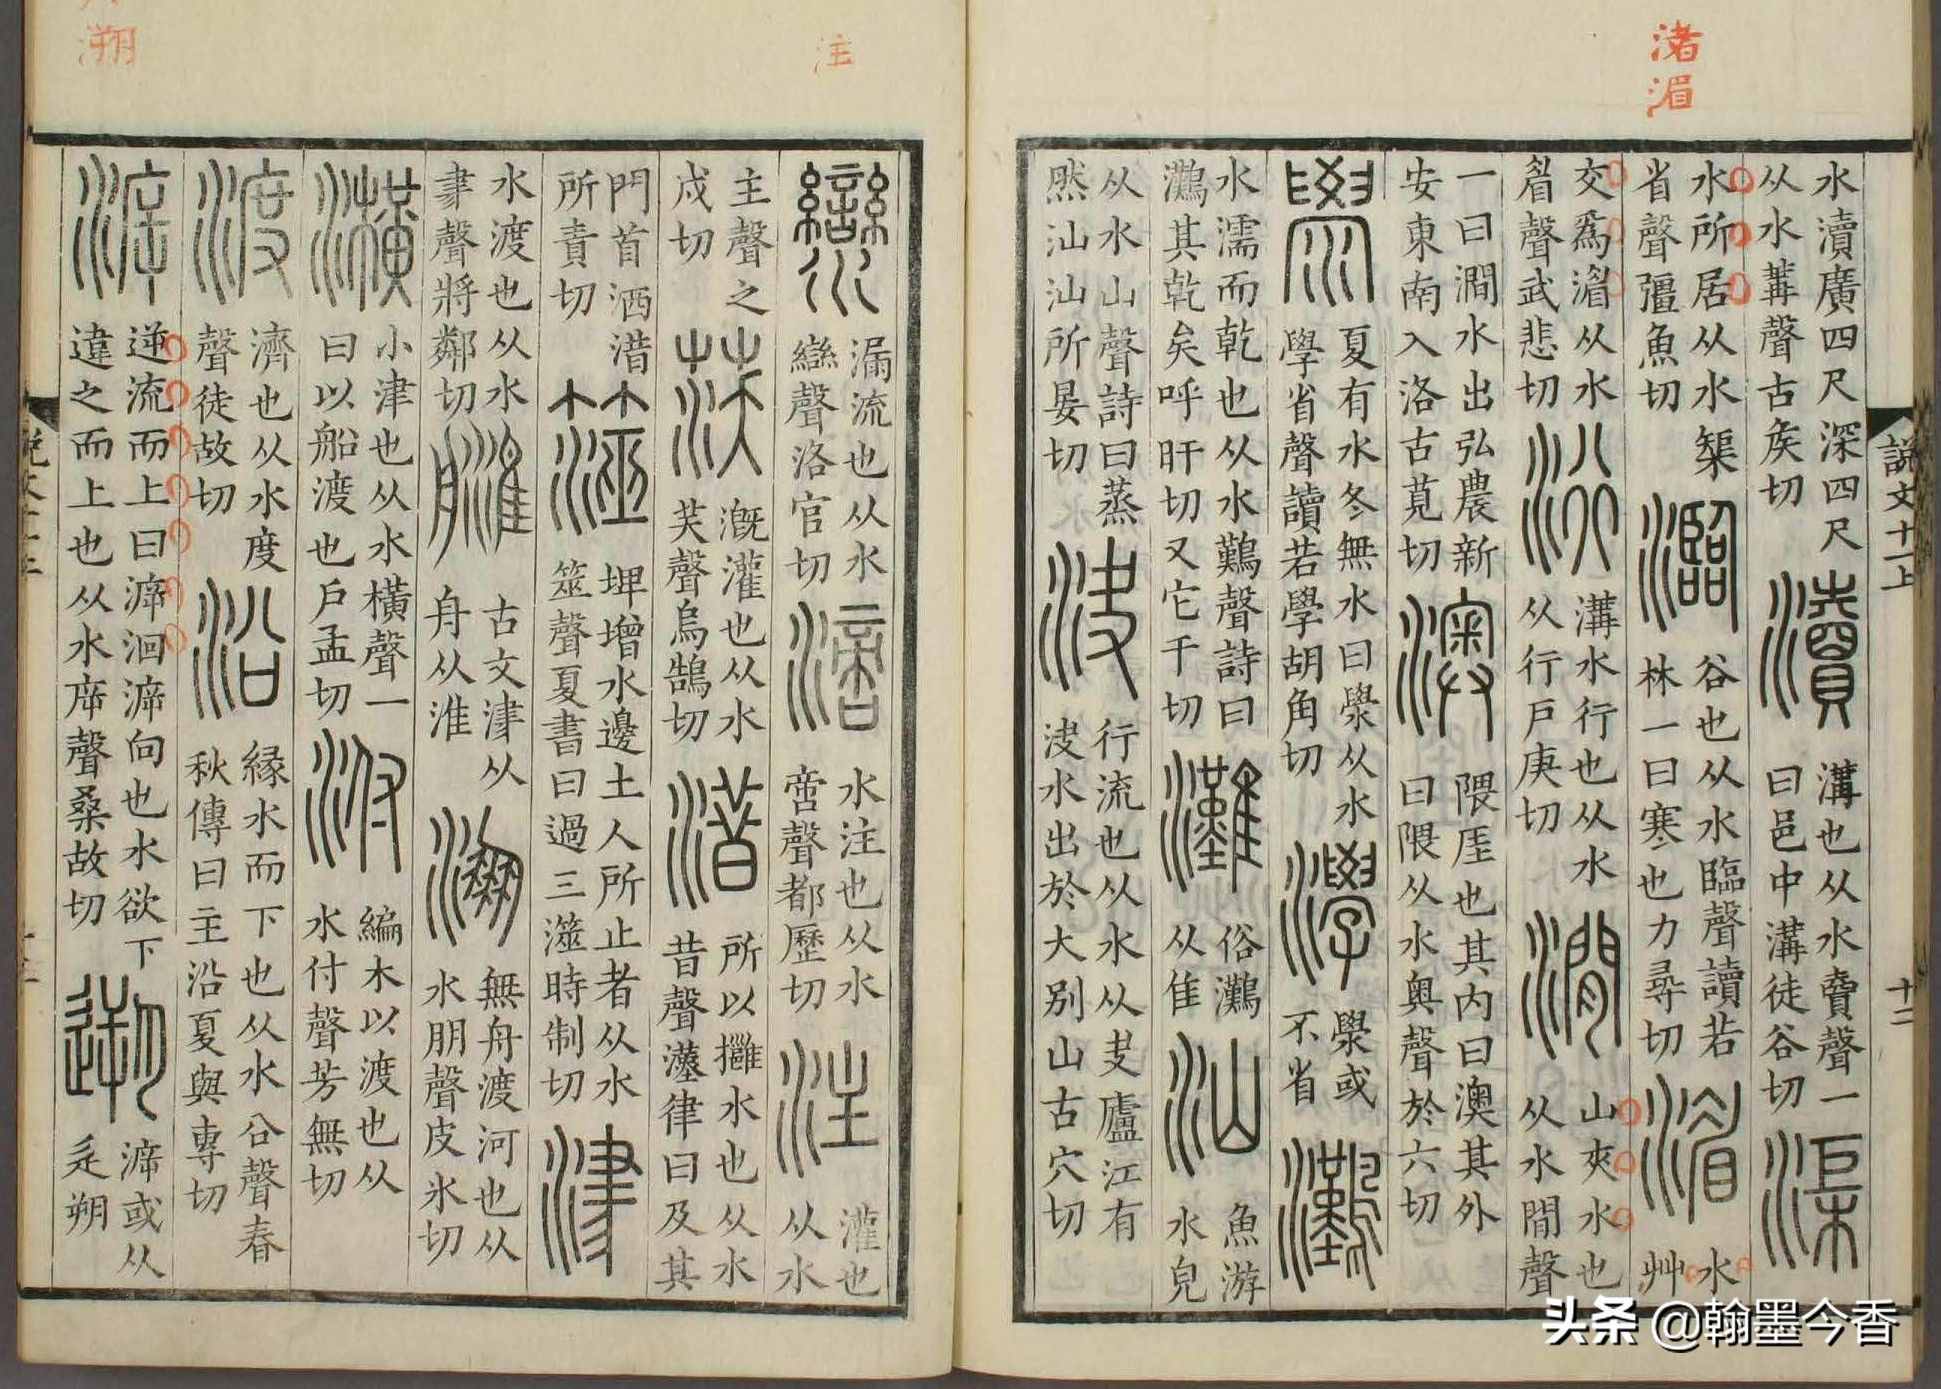 渚
湄
説文十一上
十二
水瀆廣四尺深四尺
从水冓聲古矦切
瀆
溝也从水𧶠聲一
曰邑中溝徒谷切
渠
水所居从水榘
省聲彊魚切
瀶
谷也从水臨聲讀若
林一曰寒也力尋切
湄
水
艸
交爲湄从水
眉聲武悲切
洐
溝水行也从水
从行戶庚切
澗
山夾水也
从水閒聲
一曰澗水出弘農新
安東南入洛古莧切
澳
隈厓也其内曰澳其外
曰隈从水奥聲於六切
澩
夏有水冬無水曰澩从水
學省聲讀若學胡角切
㶅
澩或
不省
灘
水濡而乾也从水鷬聲詩曰
灘其乾矣呼旰切又它干切
灘
俗灘
从隹
汕
魚游
水皃
从水山聲詩曰蒸
然汕汕所晏切
決
行流也从水从夬廬江有
決水出於大别山古穴切
注
溯
灓
漏流也从水
䜌聲洛官切
滴
水注也从水
啻聲都歷切
注
灌也
从水
主聲之
戍切
𣵽
溉灌也从水
芺聲烏鵠切
潪
所以攡水也从水
昔聲漢律曰及其
門首洒潪
所責切
澨
埤增水邊土人所止者从水
筮聲夏書曰過三澨時制切
津
水渡也从水
𦘔聲將鄰切
𦩘
古文津从
舟从淮
淜
無舟渡河也从
水朋聲皮冰切
横
小津也从水橫聲一
曰以船渡也戶孟切
泭
編木以渡也从
水付聲芳無切
渡
濟也从水度
聲徒故切
沿
緣水而下也从水㕣聲春
秋傳曰王沿夏與專切
泝
逆流而上曰泝洄泝向也水欲下
違之而上也从水㡿聲桑故切
遡
泝或从
辵朔
头条 @翰墨今香